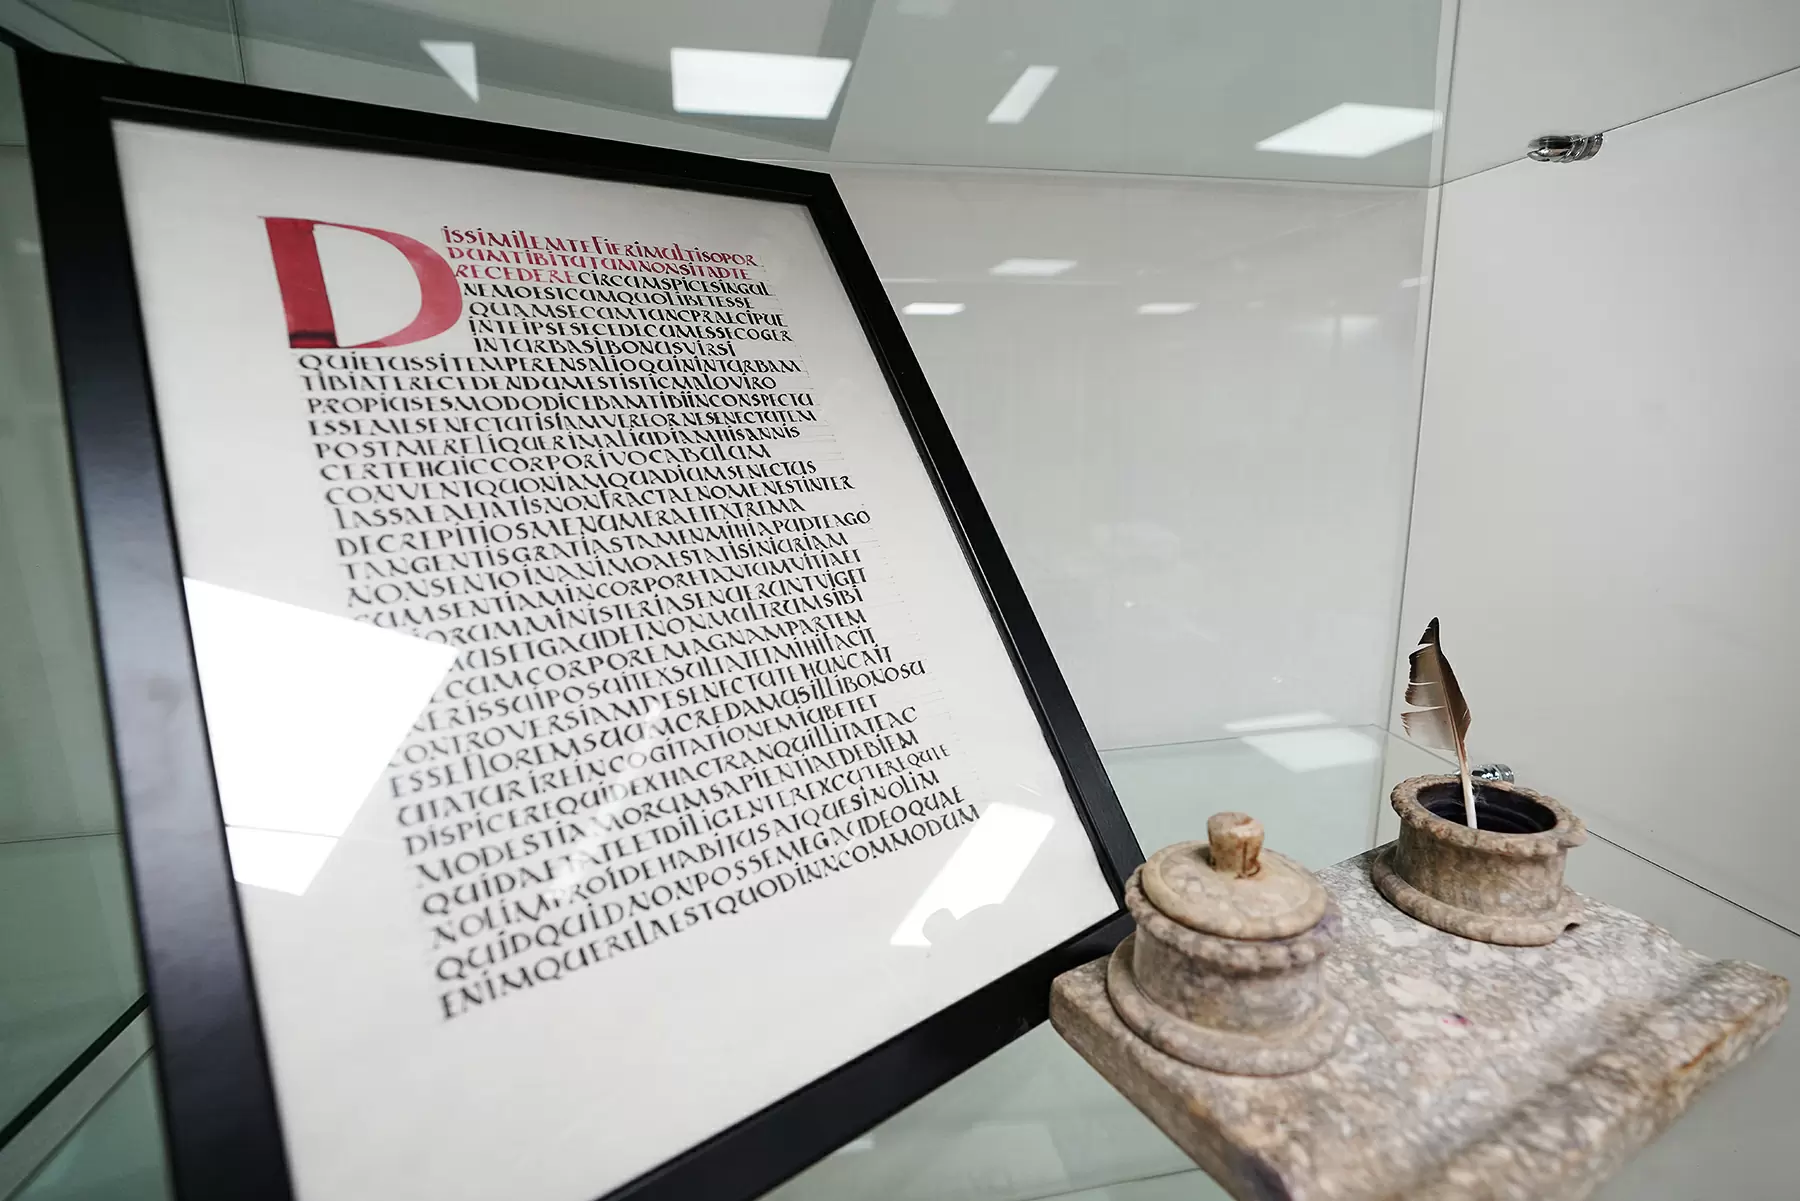 DISSIMILEMTEFIERIMULTISOPOR
DUMTIBITUTUMNONSITADTE
RECEDERECIRCUMSPICESINGUL
NEMOESTCUMQUOLIBETESSE
QUAMSECUMTUNCPRAECIPUE
INTEIPSESECEDECUMESSECOGER
INTURBASIBONUSVIRSI
QUIETUSSITEMPERENSALIOQUININTURBAM
TIBIATERECEDENDUMESTISTICMALOVIRO
PROPIUSESMODODICEBAMTIBIINCONSPECTU
ESSEMESENECTUTISIAMVEREORNESENECTUTEM
POSTMERELIQUERIMALIUDIAMHISANNIS
CERTEHUICCORPORIVOCABULUM
CONVENTQUONIAMQUADIUMSENECTUS
LASSAEAETATISNONFRACTAENOMENESTINTER
DECREPITIOSMENUMERAETEXTREMA
TANGENTISGRATIASTAMENMIHIAPUDTEAGO
NONSENTOINANIMOAESTATISINIURIAM
CUMSENTIAMINCORPORETANTUMVITIAET
ORUMMINISTERIASENUERUNTVIGET
USETGAUDETNONMULTRUMSIBI
ECUMCORPOREMAGNAMPARTEM
NERISSUIPOSUITEXSULTATETMIHIFACIT
CONTROVERSIAMDESENECTUTEHUNCAIT
ESSEFLOREMSUUMCREDAMUSILLIBONOSU
UTATURIREINCOGITATIONEMIUBETET
DISPICEREQUIDEXHACTRANQUILLITATEAC
MODESTIAMORUMSAPIENTIAEDEBIEM
QUIDAETATEETDILIGENTEREXCUTEREQUIE
NOLIMPROIDEHABITUSATQUESINOLIM
QUIDQUIDNONPOSSEMEGAUDEOQUAE
ENIMQUERELAESTQUODINCOMMODUM